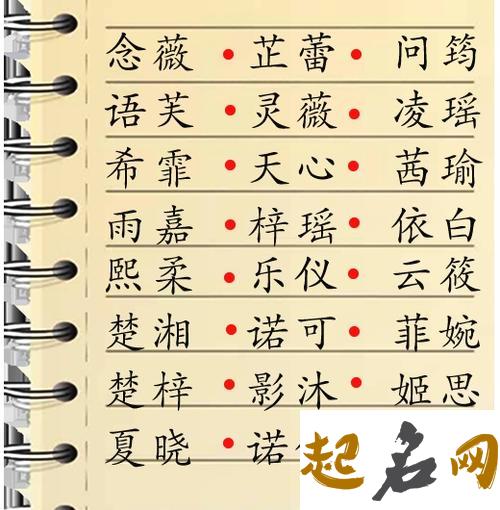 念薇 • 芷蕾 • 问筠
语芙 • 灵薇 • 凌瑶
希霏 • 天心 • 茜瑜
雨嘉 • 梓瑶 • 依白
熙柔 • 乐仪 • 云筱
楚湘 • 诺可 • 菲婉
楚梓 • 影沐 • 姬思
夏晓 • 诺
起名网